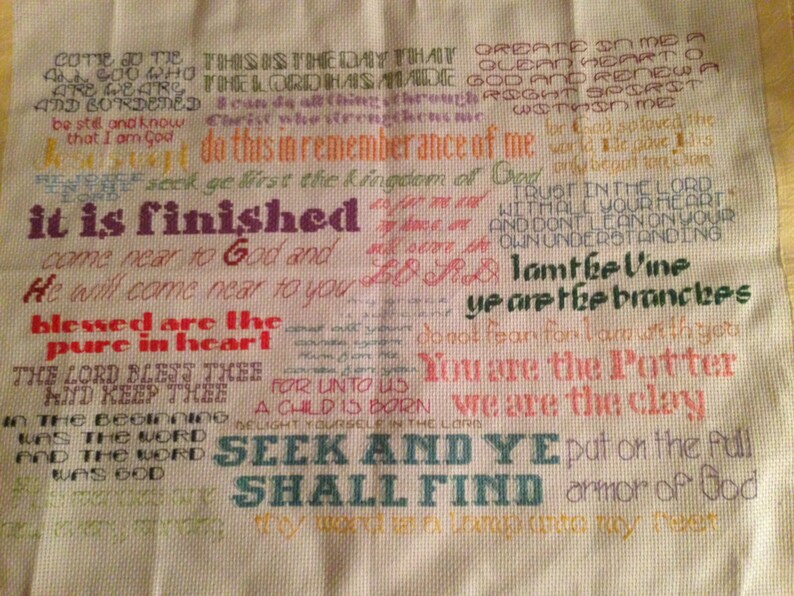 COME TO ME
ALL YOU WHO
ARE WEARY
AND BURDENED
THIS IS THE DAY THAT
THE LORD HAS MADE
CREATE IN ME A
CLEAN HEART O
GOD AND RENEW A
RIGHT SPIRIT
WITHIN ME
I can do all things through
Christ who strengthens me
be still and know
that I am God
Jesus wept
do this in rememberance of me
for God so loved the
world He gave His
only begotten Son
REJOICE
IN THE
LORD
seek ye first the kingdom of God
TRUST IN THE LORD
WITH ALL YOUR HEART
AND DON'T LEAN ON YOUR
OWN UNDERSTANDING
it is finished
as for me and
my house we
will serve the
LORD
come near to God and
He will come near to you
I am the Vine
ye are the branches
blessed are the
pure in heart
do not fear for I am with you
You are the Potter
we are the clay
THE LORD BLESS THEE
AND KEEP THEE
FOR UNTO US
A CHILD IS BORN
DELIGHT YOURSELF IN THE LORD
IN THE BEGINNING
WAS THE WORD
AND THE WORD
WAS GOD
SEEK AND YE
SHALL FIND
put on the full
armor of God
thy word is a lamp unto my feet